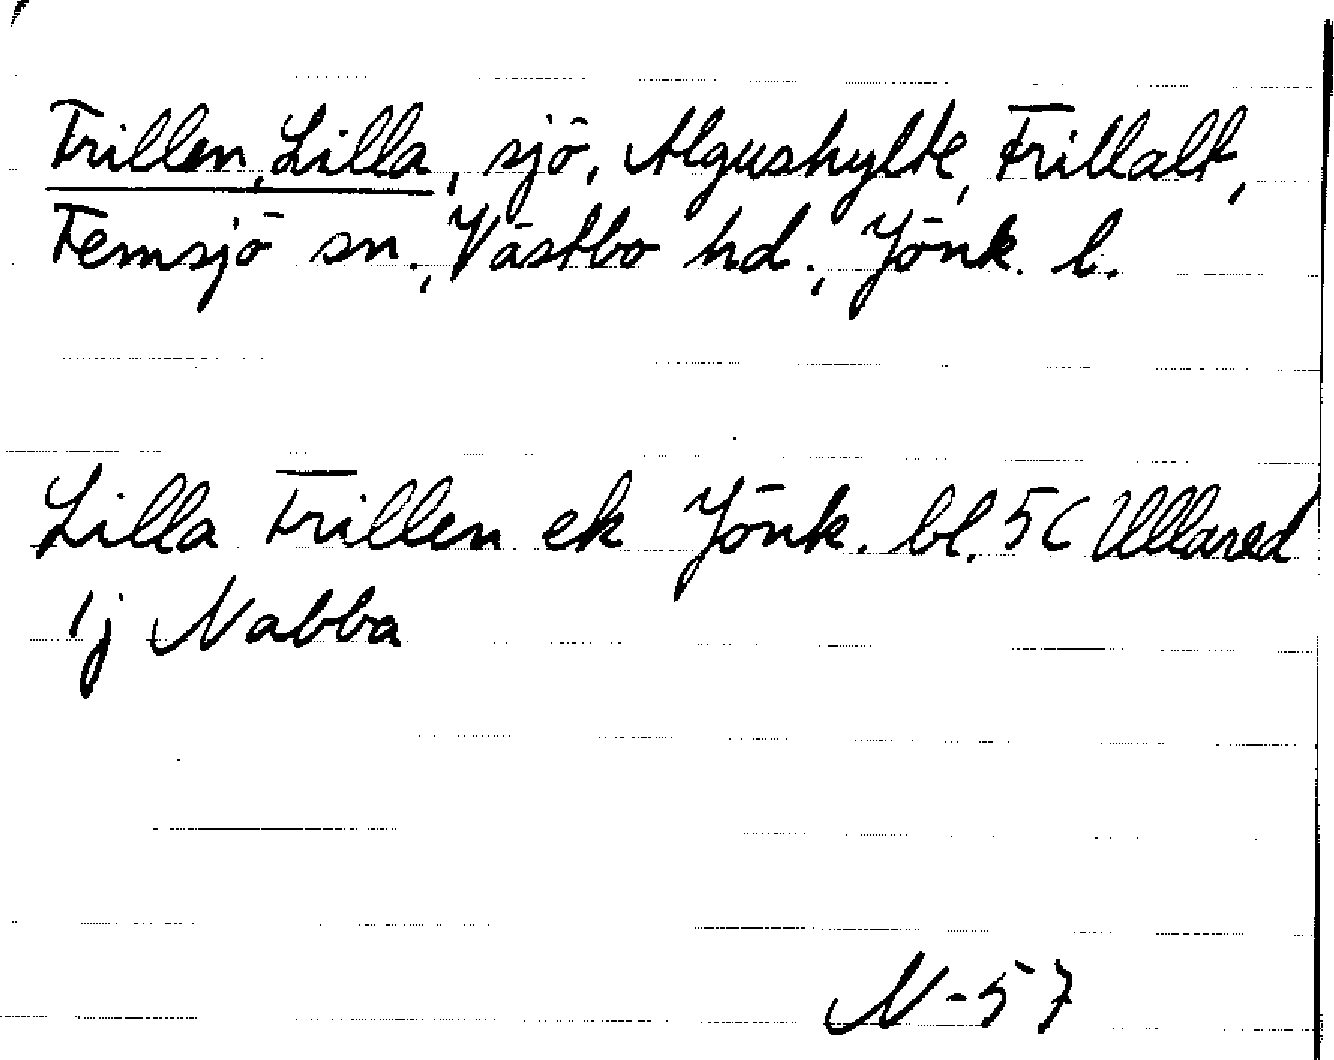 Frillen, Lilla, sjö, Algushylte, Frillalt,
Femsjö sn., Västbo hd., Jönk. l.
Lilla Frillen ek Jönk. bl. 5C Ullared
1j Nabba
N-57